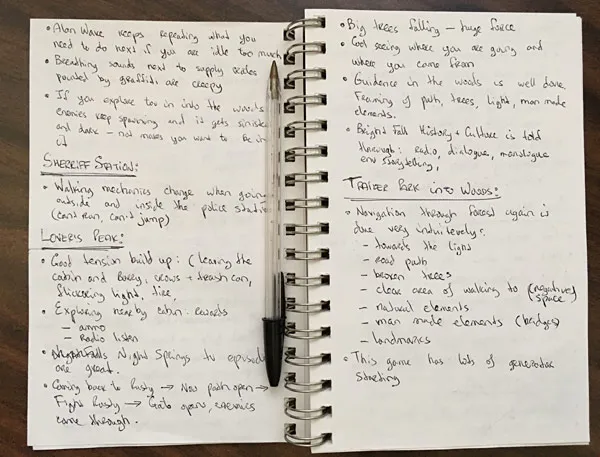 • Alan Wake keeps repeating what you
need to do next if you are idle too much
• Breathing sounds next to supply crates
pointed by graffiti are creepy
• If you explore too in into the woods
enemies keep spawning and it gets sinister
and dark – not makes you want to be in
it
SHERRIFF STATION:
• Walking mechanics change when going
outside and inside the police station
(can't run, can't jump)
LOVERS PEAK:
• Good tension build up: (clearing the
cabin and Rusty, crows + trash can,
flickering light, fire,
• Exploring nearby cabin: rewards
– ammo
– Radio listen
• Night Springs tv episodes
are great.
• Coming back to Rusty → New path open →
Fight Rusty → Gate opens, enemies
come through.
• Big trees falling – huge force
• Cool seeing where you are going and
where you came from
• Guidance in the woods is well done.
Framing of path, trees, light, man made
elements.
• Bright Fall History + Culture is told
through: radio, dialogue, monologue
env storytelling,
TRAILER PARK INTO WOODS:
• Navigation through forest again is
done very induitevely:
– towards the light
– road path
– broken trees
– clear area of walking to (negative
space)
– natural elements
– man made elements (bridges)
– landmarks
• This game has lots of generator
starting